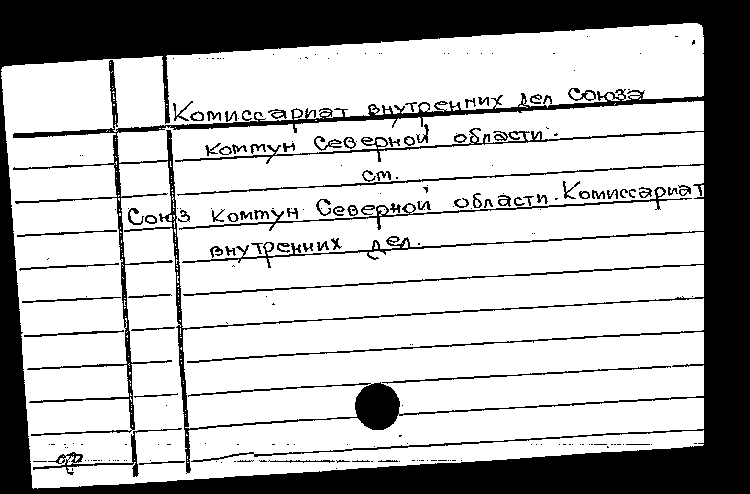 Комиссариат внутренних дел Союза
коммун Северной области.
см.
Союз коммун Северной области. Комиссариат
внутренних дел.